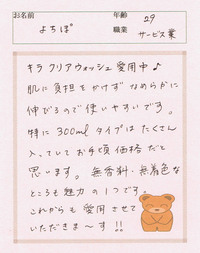 お名前
よちぽ
年齢
29
職業
サービス業
キラ クリアウォッシュ愛用中♪
肌に負担をかけず なめらかに
伸びるので使いやすいです。
特に300mlタイプはたくさん
入っていてお手頃価格だと
思います。無香料・無着色な
ところも魅力の1つです。
これからも愛用させて
いただきま〜す!!